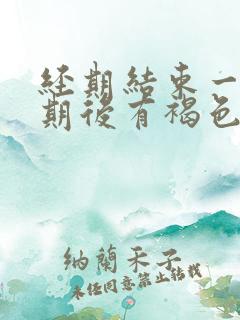 经期結束一
期後有褐色
納蘭禾子
未任同意禁止轉載